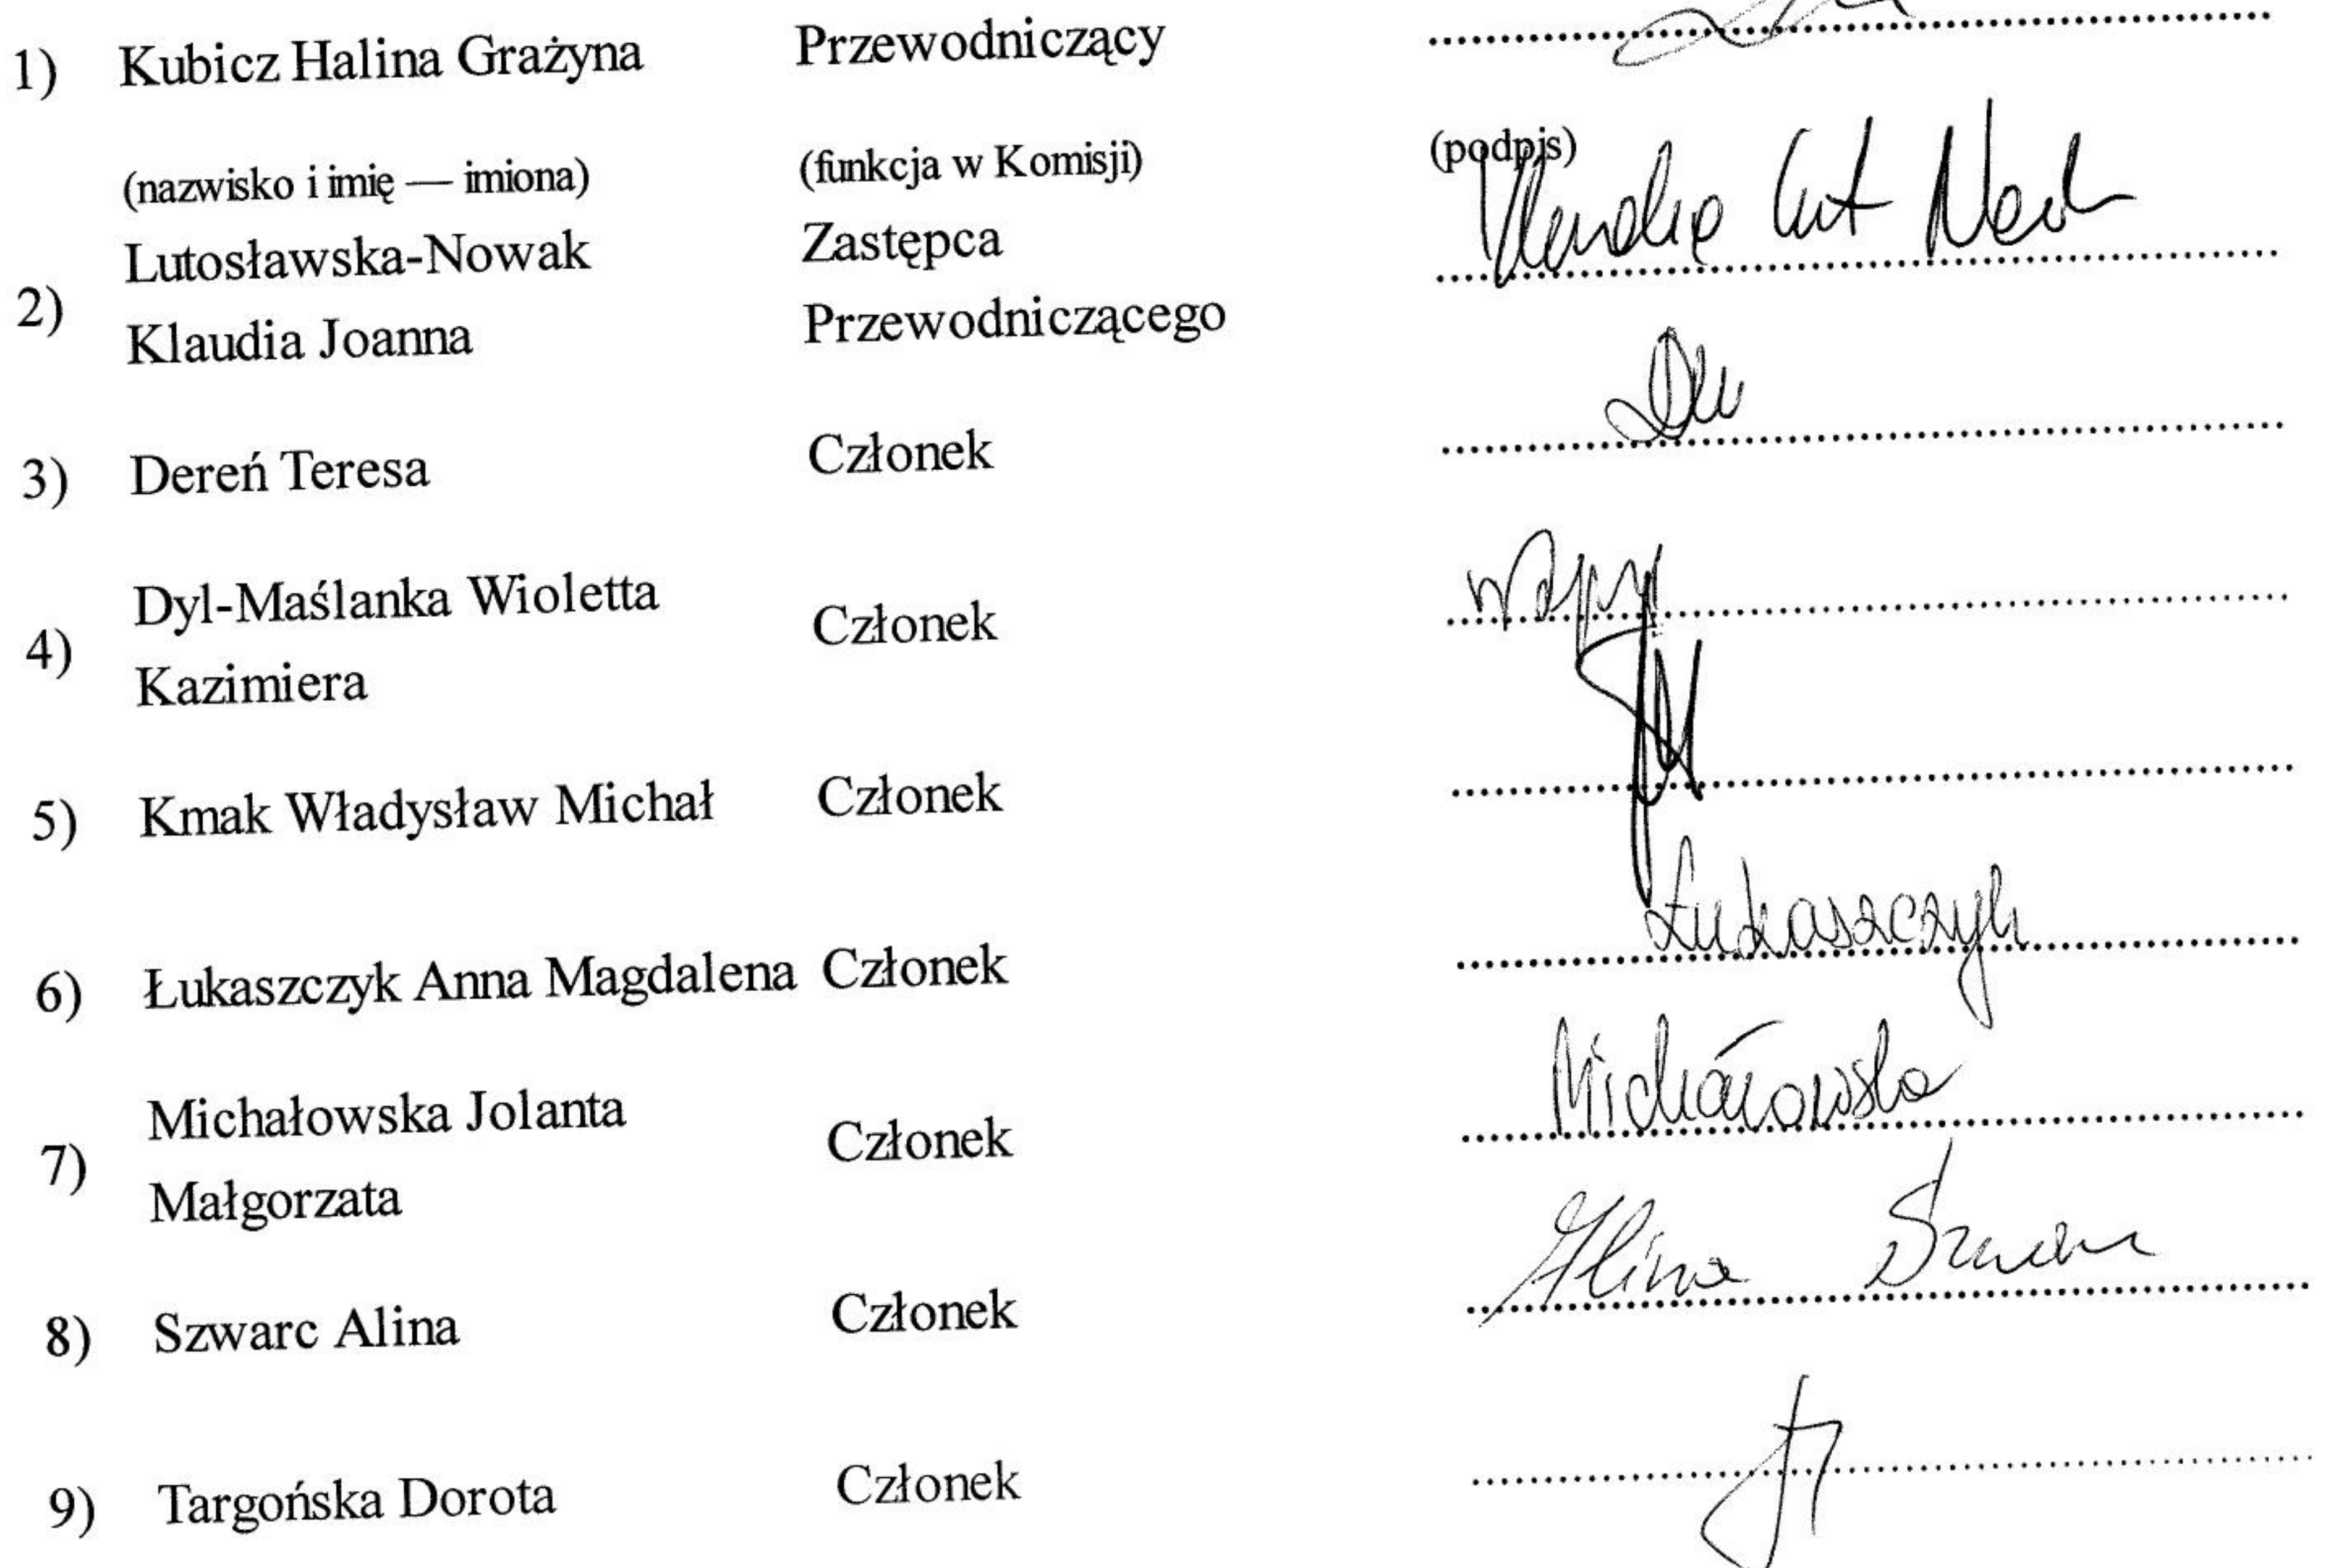 1) Kubicz Halina Grażyna Przewodniczący
(nazwisko i imię — imiona) (funkcja w Komisji) (podpis)
2) Lutosławska-Nowak Klaudia Joanna Zastępca Przewodniczącego
3) Dereń Teresa Członek
4) Dyl-Maślanka Wioletta Kazimiera Członek
5) Kmak Władysław Michał Członek
6) Łukaszczyk Anna Magdalena Członek Łukaszczyk
7) Michałowska Jolanta Małgorzata Członek Michałowska
8) Szwarc Alina Członek Alina
9) Targońska Dorota Członek